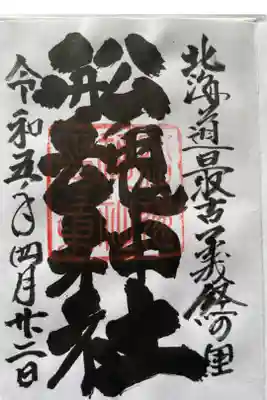 北海道最古義経の里
舩魂神社
令和五年四月廿二日